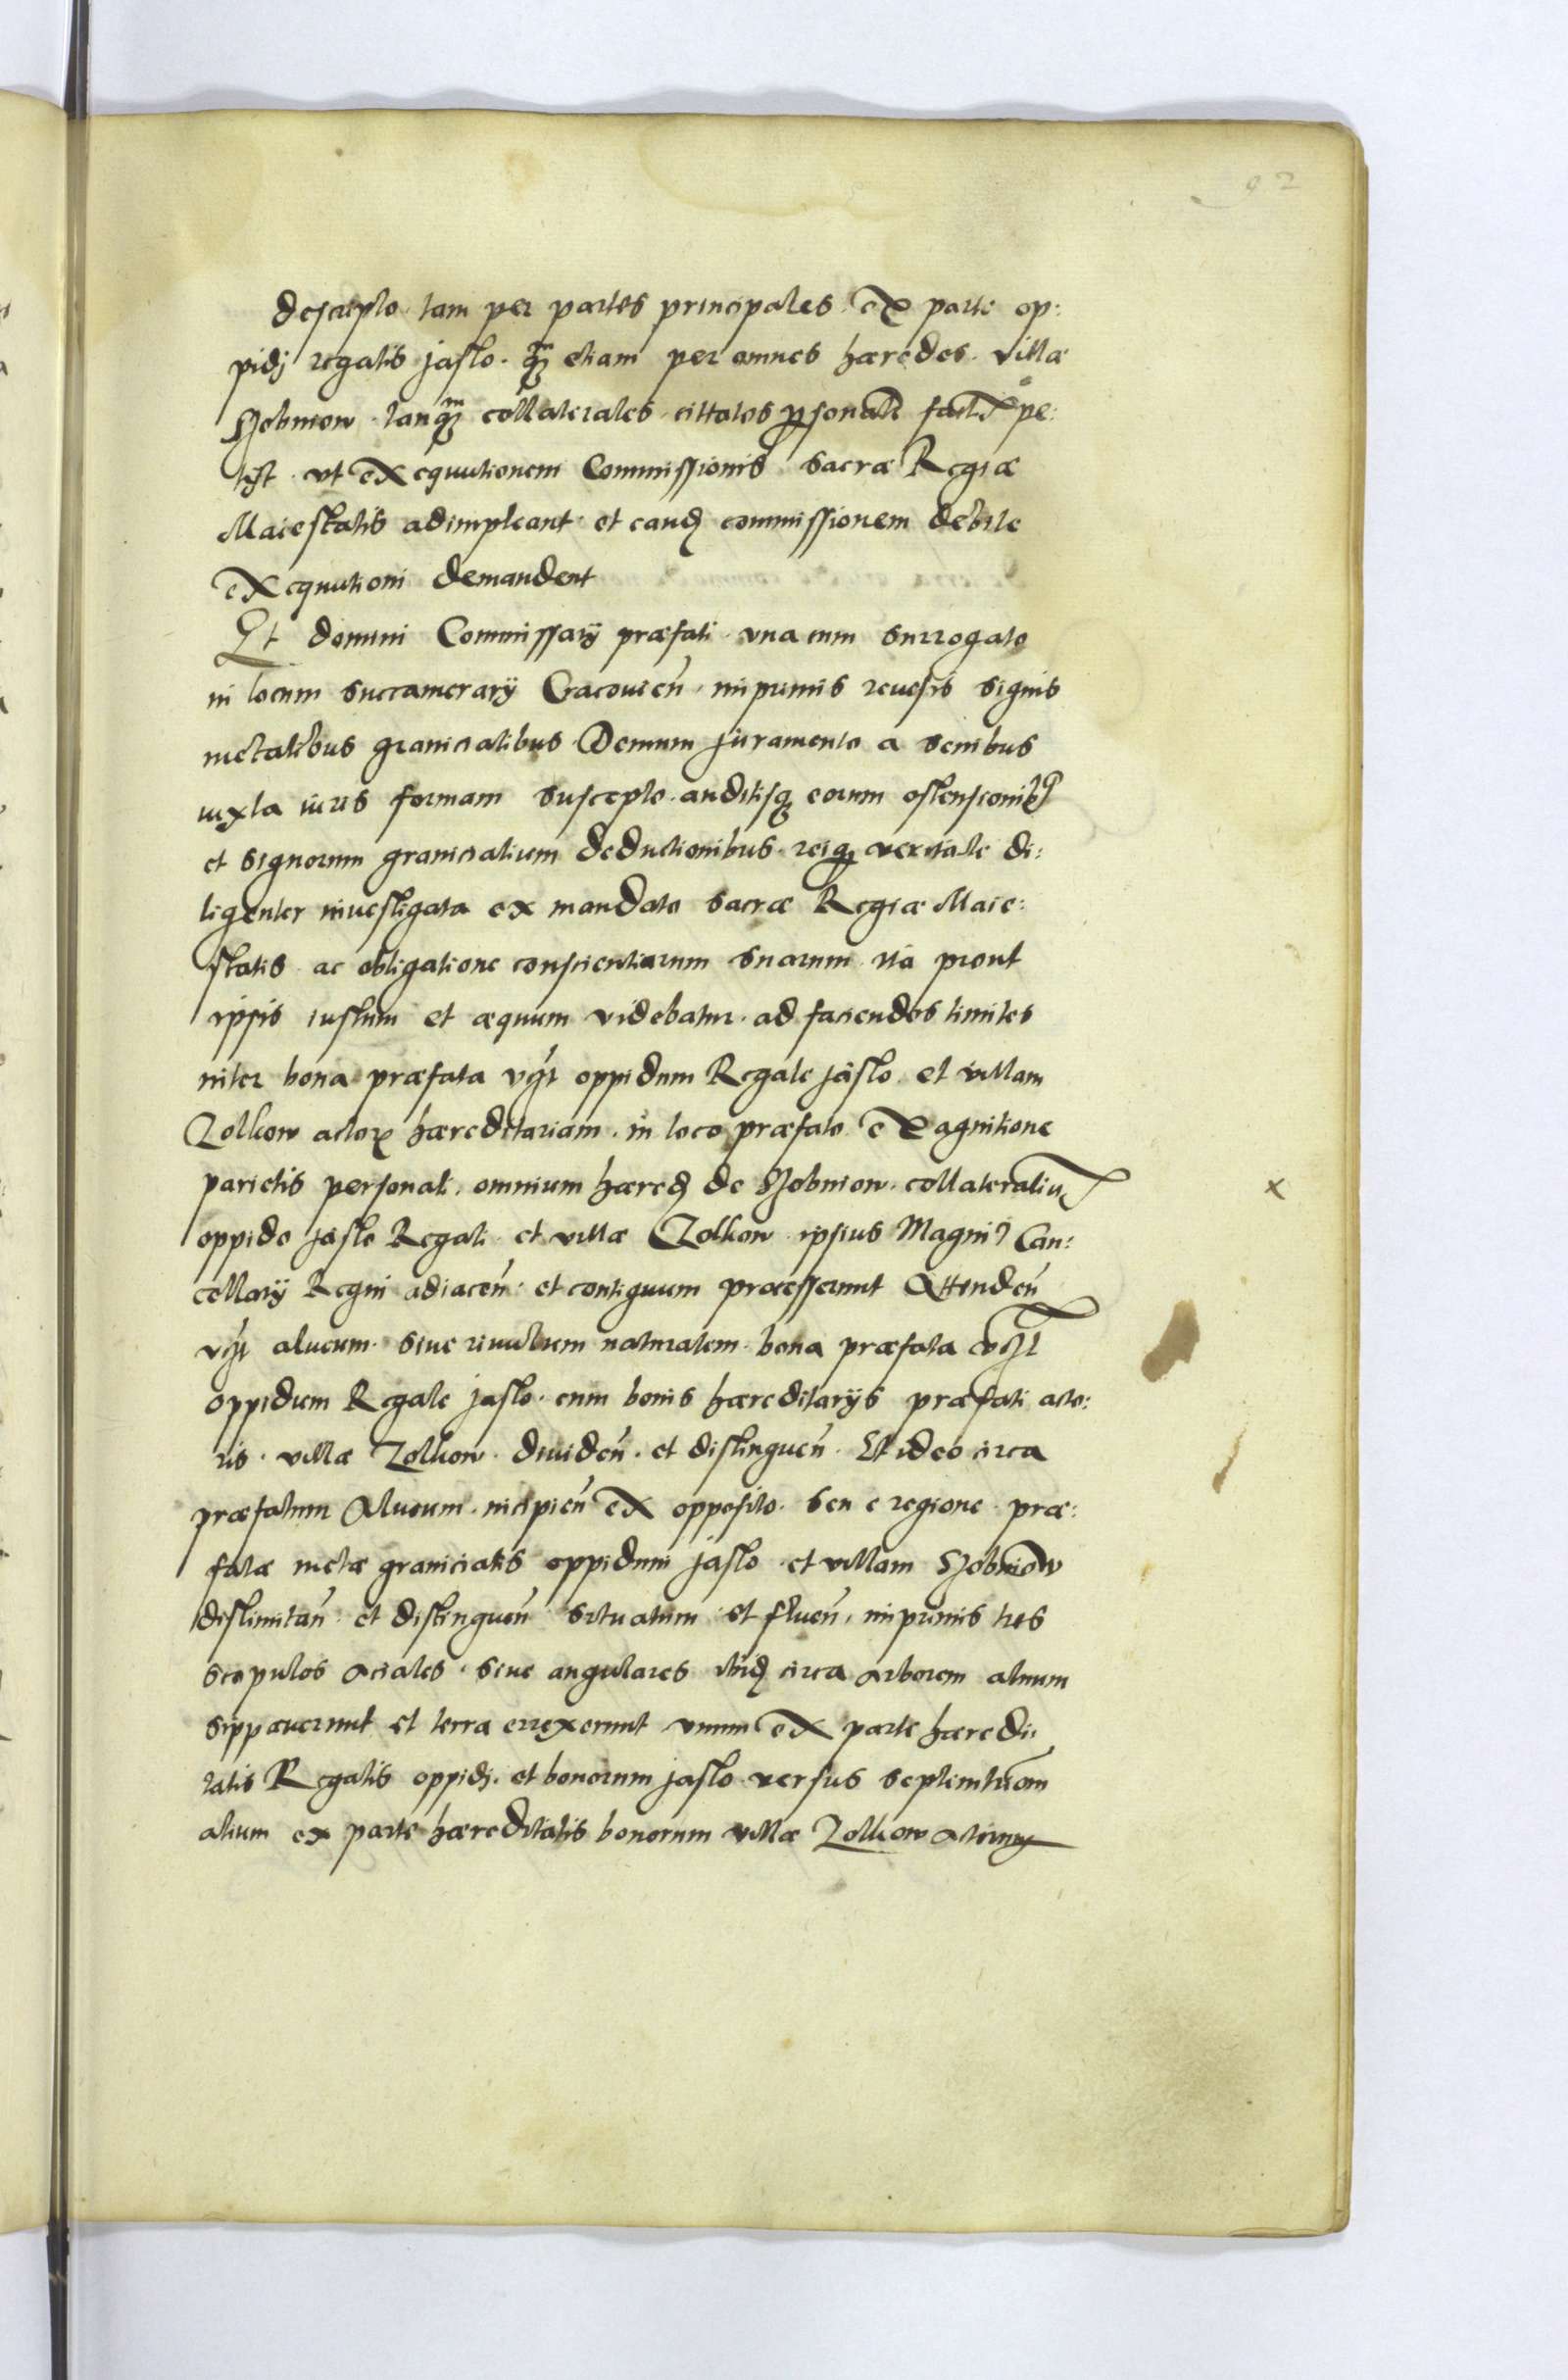 92
descripto tam per partes principales ex parte op:
pidj regalis Jaslo. qm̃ etiam per omnes hæredes villæ
Sobniow tanqm̃ collaterales cittatos ꝑsonalr̃ pe:
tyt vt exequutionem Commissionis Sacræ Regiæ
Maiestatis adimpleant et eand commissionem debite
exequutioni demandent
Et domini Commissarij præfati vnacum surrogato
in locum Succamerarij Cracouień imprimis reuisis signis
metalibus granicialibus Demum Juramento a senibus
iuxta iuris formam suscepto auditisq eorum ostensionibꝰ
et signorum granicialium deductionibus reiq veritate di:
ligenter inuestigata ex mandato sacræ Regiæ Maie:
statis ac obligatione conscientiarum suarum ita prout
ipsis iustum et æquum videbatur ad faciendos limites
inter bona præfata vꝫt oppidum Regale Jaslo et villam
Zolkow actoꝝ hæreditariam in loco præfato ex agnitione
parietis personali omnium hæred de Sobniow collateraliu
oppido Jaslo Regali et villæ Zolkow ipsius Magnꝰ Can:
cellarij Regni adiaceń: et contiguum processerunt Attendeń
vꝫt alueum siue riuulum naturalem bona præfata vꝫt
oppidum Regale Jaslo cum bonis hæreditarijs præfati acto:
ris villæ Zolkow diuideń et distingueń Et ideo circa
præfatum Alueum incipień ex opposito seu e regione præ:
fatæ metæ granicialis oppidum Jaslo et villam Sobniow
dislimitań et distingueń situatum et flueń, imprimis tres
scopulos aciales siue angulares ibid circa arborem alnum
sippauerunt et terra errexerunt vnum ex parte hæredi:
tatis Regalis oppidj et bonorum Jaslo versus septemtriom
alium ex parte hæreditatis bonorum villæ Zolkow
x